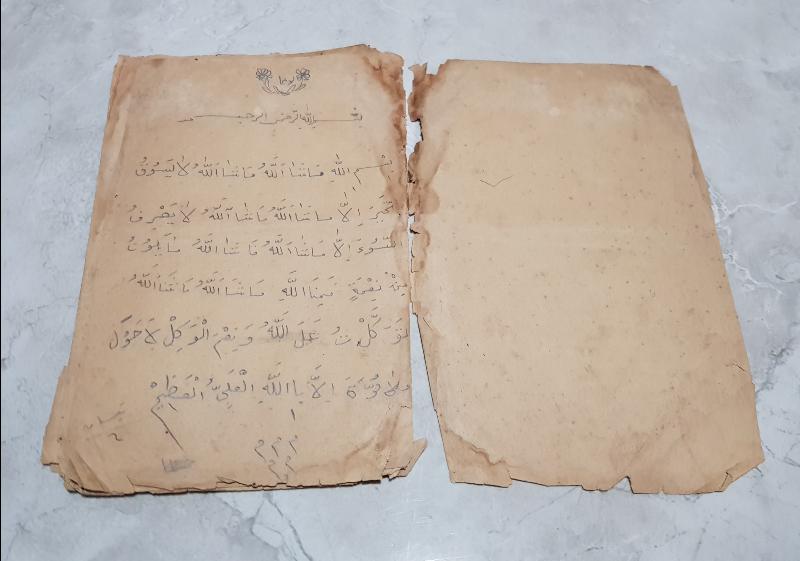 بسم الله الرحمن الرحيم
بِسْمِ اللّٰهِ مَاشَاءَ اللّٰهُ مَاشَاءَ اللّٰهُ لَا يَسُوْقُ
الْخَيْرَ اِلَّا مَاشَاءَ اللّٰهُ مَاشَاءَ اللّٰهُ لَا يَصْرِفُ
السُّوْءَ اِلَّا مَاشَاءَ اللّٰهُ مَاشَاءَ اللّٰهُ مَا يَكُوْنُ
مِنْ نِعْمَةٍ فَمِنَ اللّٰهِ مَاشَاءَ اللّٰهُ مَاشَاءَ اللّٰهُ
تَوَكَّلْتُ عَلَى اللّٰهُ وَنِعْمَ الْوَكِلْ لَاحَوْلَ
وَلَا قُوَّةَ اِلَّا بِاللّٰهِ الْعَلِيُّ الْعَظِيْمْ